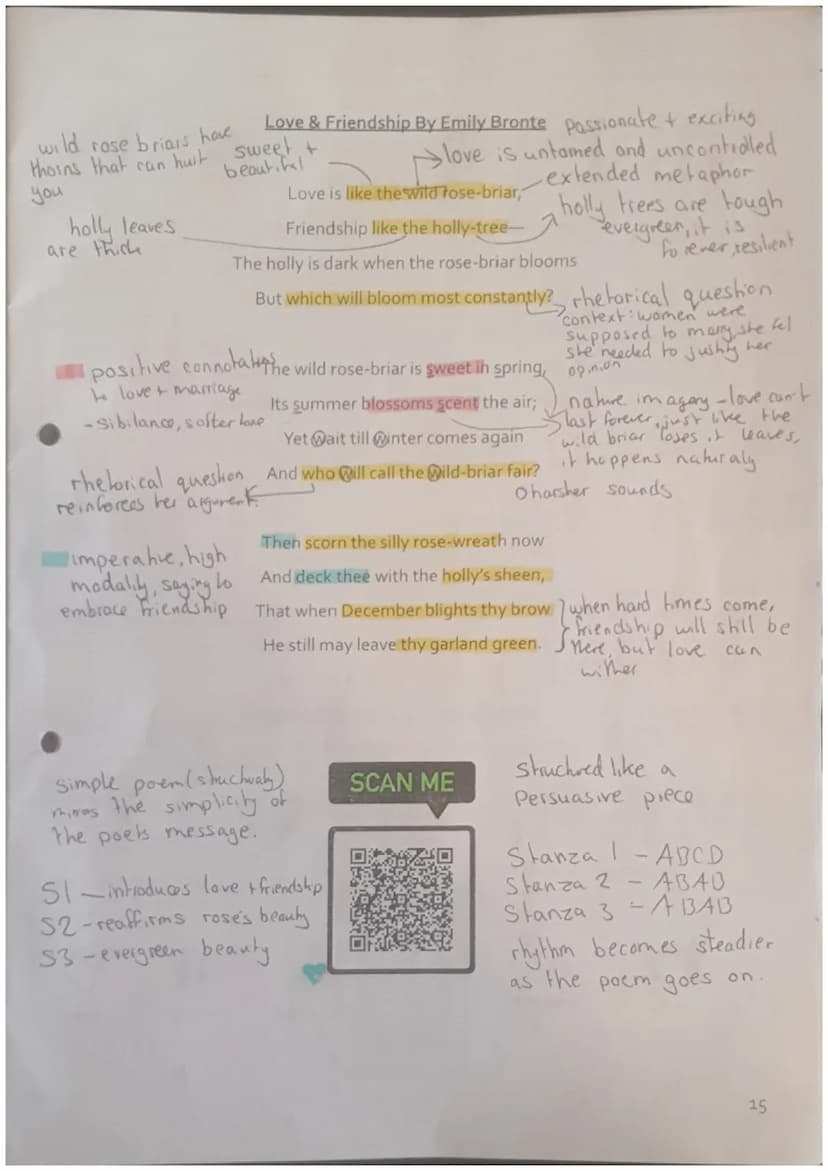 Love & Friendship By Emily Bronte
passionate + exciting
wild rose briars have
thorns that can hurt
you
sweet +
beautiful
love is untamed and uncontrolled
extended metaphor
Love is like the wild rose-briar,
holly trees are tough
evergreen, it is
forever, resilient
holly leaves
are thick
Friendship like the holly-tree—
The holly is dark when the rose-briar blooms
But which will bloom most constantly?
rhetorical question
context: women were
supposed to marry, she fel
she needed to justify her
opinion
positive connotations
to love + marriage
- sibilance, softer tone
The wild rose-briar is sweet in spring,
Its summer blossoms scent the air;
nature imagery - love can't
last forever, just like the
wild briar loses it leaves,
it happens naturaly
Yet Wait till Winter comes again
And who Will call the Wild-briar fair?
O harsher sounds
rhetorical question
reinforces her argument.
Then scorn the silly rose-wreath now
imperative, high
modality, saying to
embrace friendship
And deck thee with the holly's sheen,
That when December blights thy brow
He still may leave thy garland green.
when hard times come,
friendship will still be
there, but love can
wither
simple poem (structuraly)
the simplicity of
the poets message.
SCAN ME
Structured like a
persuasive piece
S1 - introduces love + friendship
S2 - reaffirms rose's beauty
S3 - evergreen beauty
Stanza 1 - ABCD
Stanza 2 - ABAB
Stanza 3 - ABAB
rhythm becomes steadier
as the poem goes on.
15